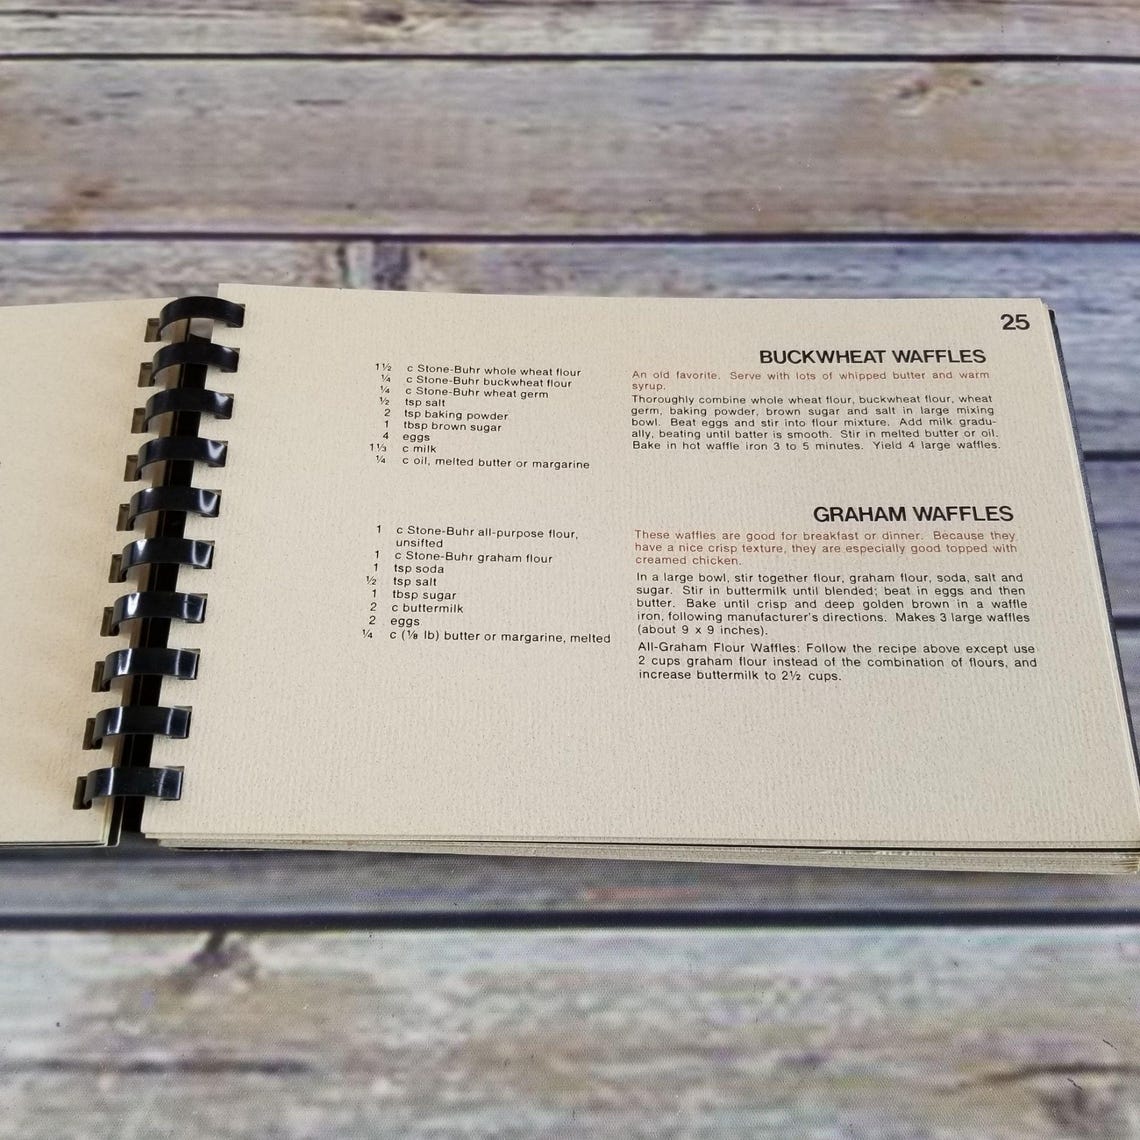 25
BUCKWHEAT WAFFLES
1½ c Stone-Buhr whole wheat flour
¼ c Stone-Buhr buckwheat flour
¼ c Stone-Buhr wheat germ
½ tsp salt
2 tsp baking powder
1 tbsp brown sugar
4 eggs
1⅓ c milk
¼ c oil, melted butter or margarine
An old favorite. Serve with lots of whipped butter and warm
syrup.
Thoroughly combine whole wheat flour, buckwheat flour, wheat
germ, baking powder, brown sugar and salt in large mixing
bowl. Beat eggs and stir into flour mixture. Add milk gradu-
ally, beating until batter is smooth. Stir in melted butter or oil.
Bake in hot waffle iron 3 to 5 minutes. Yield 4 large waffles.
GRAHAM WAFFLES
1 c Stone-Buhr all-purpose flour,
unsifted
1 c Stone-Buhr graham flour
1 tsp soda
½ tsp salt
1 tbsp sugar
2 c buttermilk
2 eggs
¼ c (⅛ lb) butter or margarine, melted
These waffles are good for breakfast or dinner. Because they
have a nice crisp texture, they are especially good topped with
creamed chicken.
In a large bowl, stir together flour, graham flour, soda, salt and
sugar. Stir in buttermilk until blended; beat in eggs and then
butter. Bake until crisp and deep golden brown in a waffle
iron, following manufacturer's directions. Makes 3 large waffles
(about 9 x 9 inches).
All-Graham Flour Waffles: Follow the recipe above except use
2 cups graham flour instead of the combination of flours, and
increase buttermilk to 2½ cups.